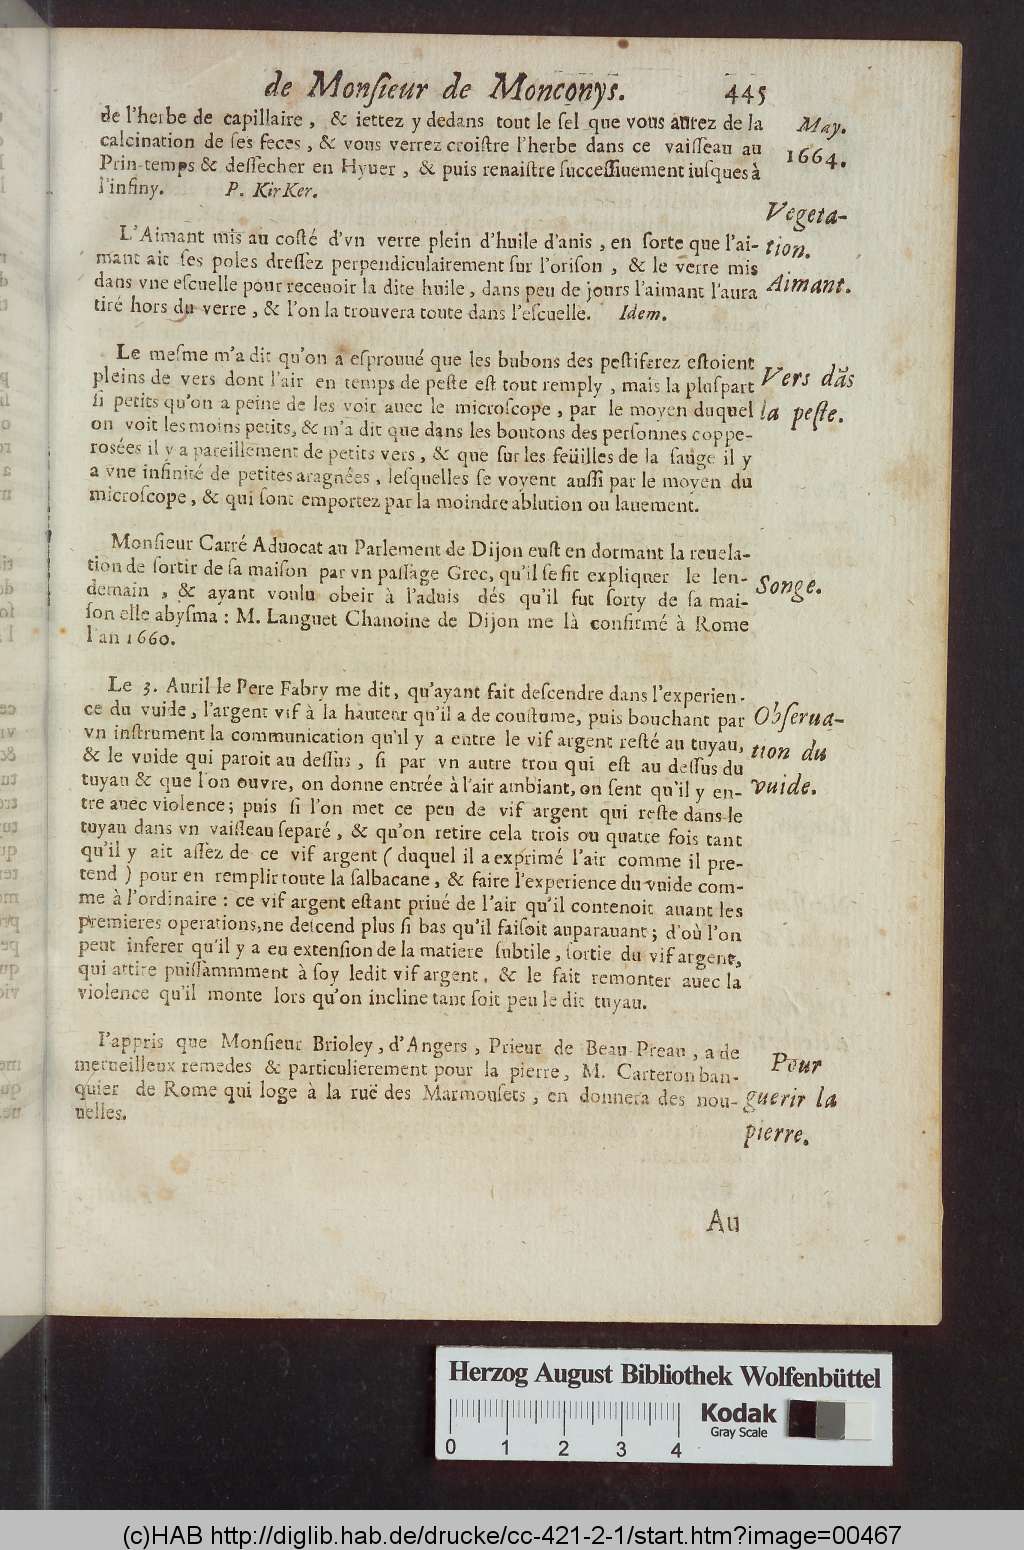 de Monſieur de Monconys. 445
de l'herbe de capillaire, & iettez y dedans tout le ſel que vous aurez de la
calcination de ſes feces, & vous verrez croiſtre l'herbe dans ce vaiſſeau au
Prin-temps & deſſecher en Hyuer, & puis renaiſtre ſucceſſiuement iuſques à
l'infiny. P. KirKer.
May.
1664.
Vegeta-
tion.
L'Aimant mis au coſté d'vn verre plein d'huile d'anis, en ſorte que l'ai-
mant ait ſes poles dreſſez perpendiculairement ſur l'oriſon, & le verre mis
dans vne eſcuelle pour receuoir la dite huile, dans peu de jours l'aimant l'aura
tiré hors du verre, & l'on la trouuera toute dans l'eſcuelle. Idem.
Aimant.
Le meſme m'a dit qu'on a eſprouué que les bubons des peſtiferez eſtoient
pleins de vers dont l'air en temps de peſte eſt tout remply, mais la pluſpart
ſi petits qu'on a peine de les voir auec le microſcope, par le moyen duquel
on voit les moins petits, & m'a dit que dans les boutons des perſonnes coppe-
rosées il y a pareillement de petits vers, & que ſur les feüilles de la ſauge il y
a vne infinité de petites aragnées, leſquelles ſe voyent auſſi par le moyen du
microſcope, & qui ſont emportez par la moindre ablution ou lauement.
Vers dãs
la peſte.
Monſieur Carré Aduocat au Parlement de Dijon euſt en dormant la reuela-
tion de ſortir de ſa maiſon par vn paſſage Grec, qu'il ſe fit expliquer le len-
demain, & ayant voulu obeir à l'aduis dés qu'il fut ſorty de ſa mai-
ſon elle abyſma: M. Languet Chanoine de Dijon me là confirmé à Rome
l'an 1660.
Songe.
Le 3. Auril le Pere Fabry me dit, qu'ayant fait deſcendre dans l'experien-
ce du vuide, l'argent vif à la hauteur qu'il a de couſtume, puis bouchant par
vn inſtrument la communication qu'il y a entre le vif argent reſté au tuyau,
& le vuide qui paroit au deſſus, ſi par vn autre trou qui eſt au deſſus du
tuyau & que l'on ouvre, on donne entrée à l'air ambiant, on ſent qu'il y en-
tre auec violence; puis ſi l'on met ce peu de vif argent qui reſte dans le
tuyau dans vn vaiſſeau ſeparé, & qu'on retire cela trois ou quatre fois tant
qu'il y ait aſſez de ce vif argent (duquel il a exprimé l'air comme il pre-
tend) pour en remplir toute la ſalbacane, & faire l'experience du vuide com-
me à l'ordinaire: ce vif argent eſtant priué de l'air qu'il contenoit auant les
premieres operations, ne deſcend plus ſi bas qu'il faiſoit auparauant; d'où l'on
peut inferer qu'il y a eu extenſion de la matiere ſubtile, ſortie du vif argent,
qui attire puiſſammment à ſoy ledit vif argent, & le fait remonter auec la
violence qu'il monte lors qu'on incline tant ſoit peu le dit tuyau.
Obſerua-
tion du
vuide.
I'appris que Monſieur Brioley, d'Angers, Prieur de Beau Preau, a de
merueilleux remedes & particulierement pour la pierre, M. Carteron ban-
quier de Rome qui loge à la ruë des Marmouſets, en donnera des nou-
uelles.
Pour
guerir la
pierre.
Au
Herzog August Bibliothek Wolfenbüttel
0 1 2 3 4
Kodak
Gray Scale
(c)HAB http://diglib.hab.de/drucke/cc-421-2-1/start.htm?image=00467